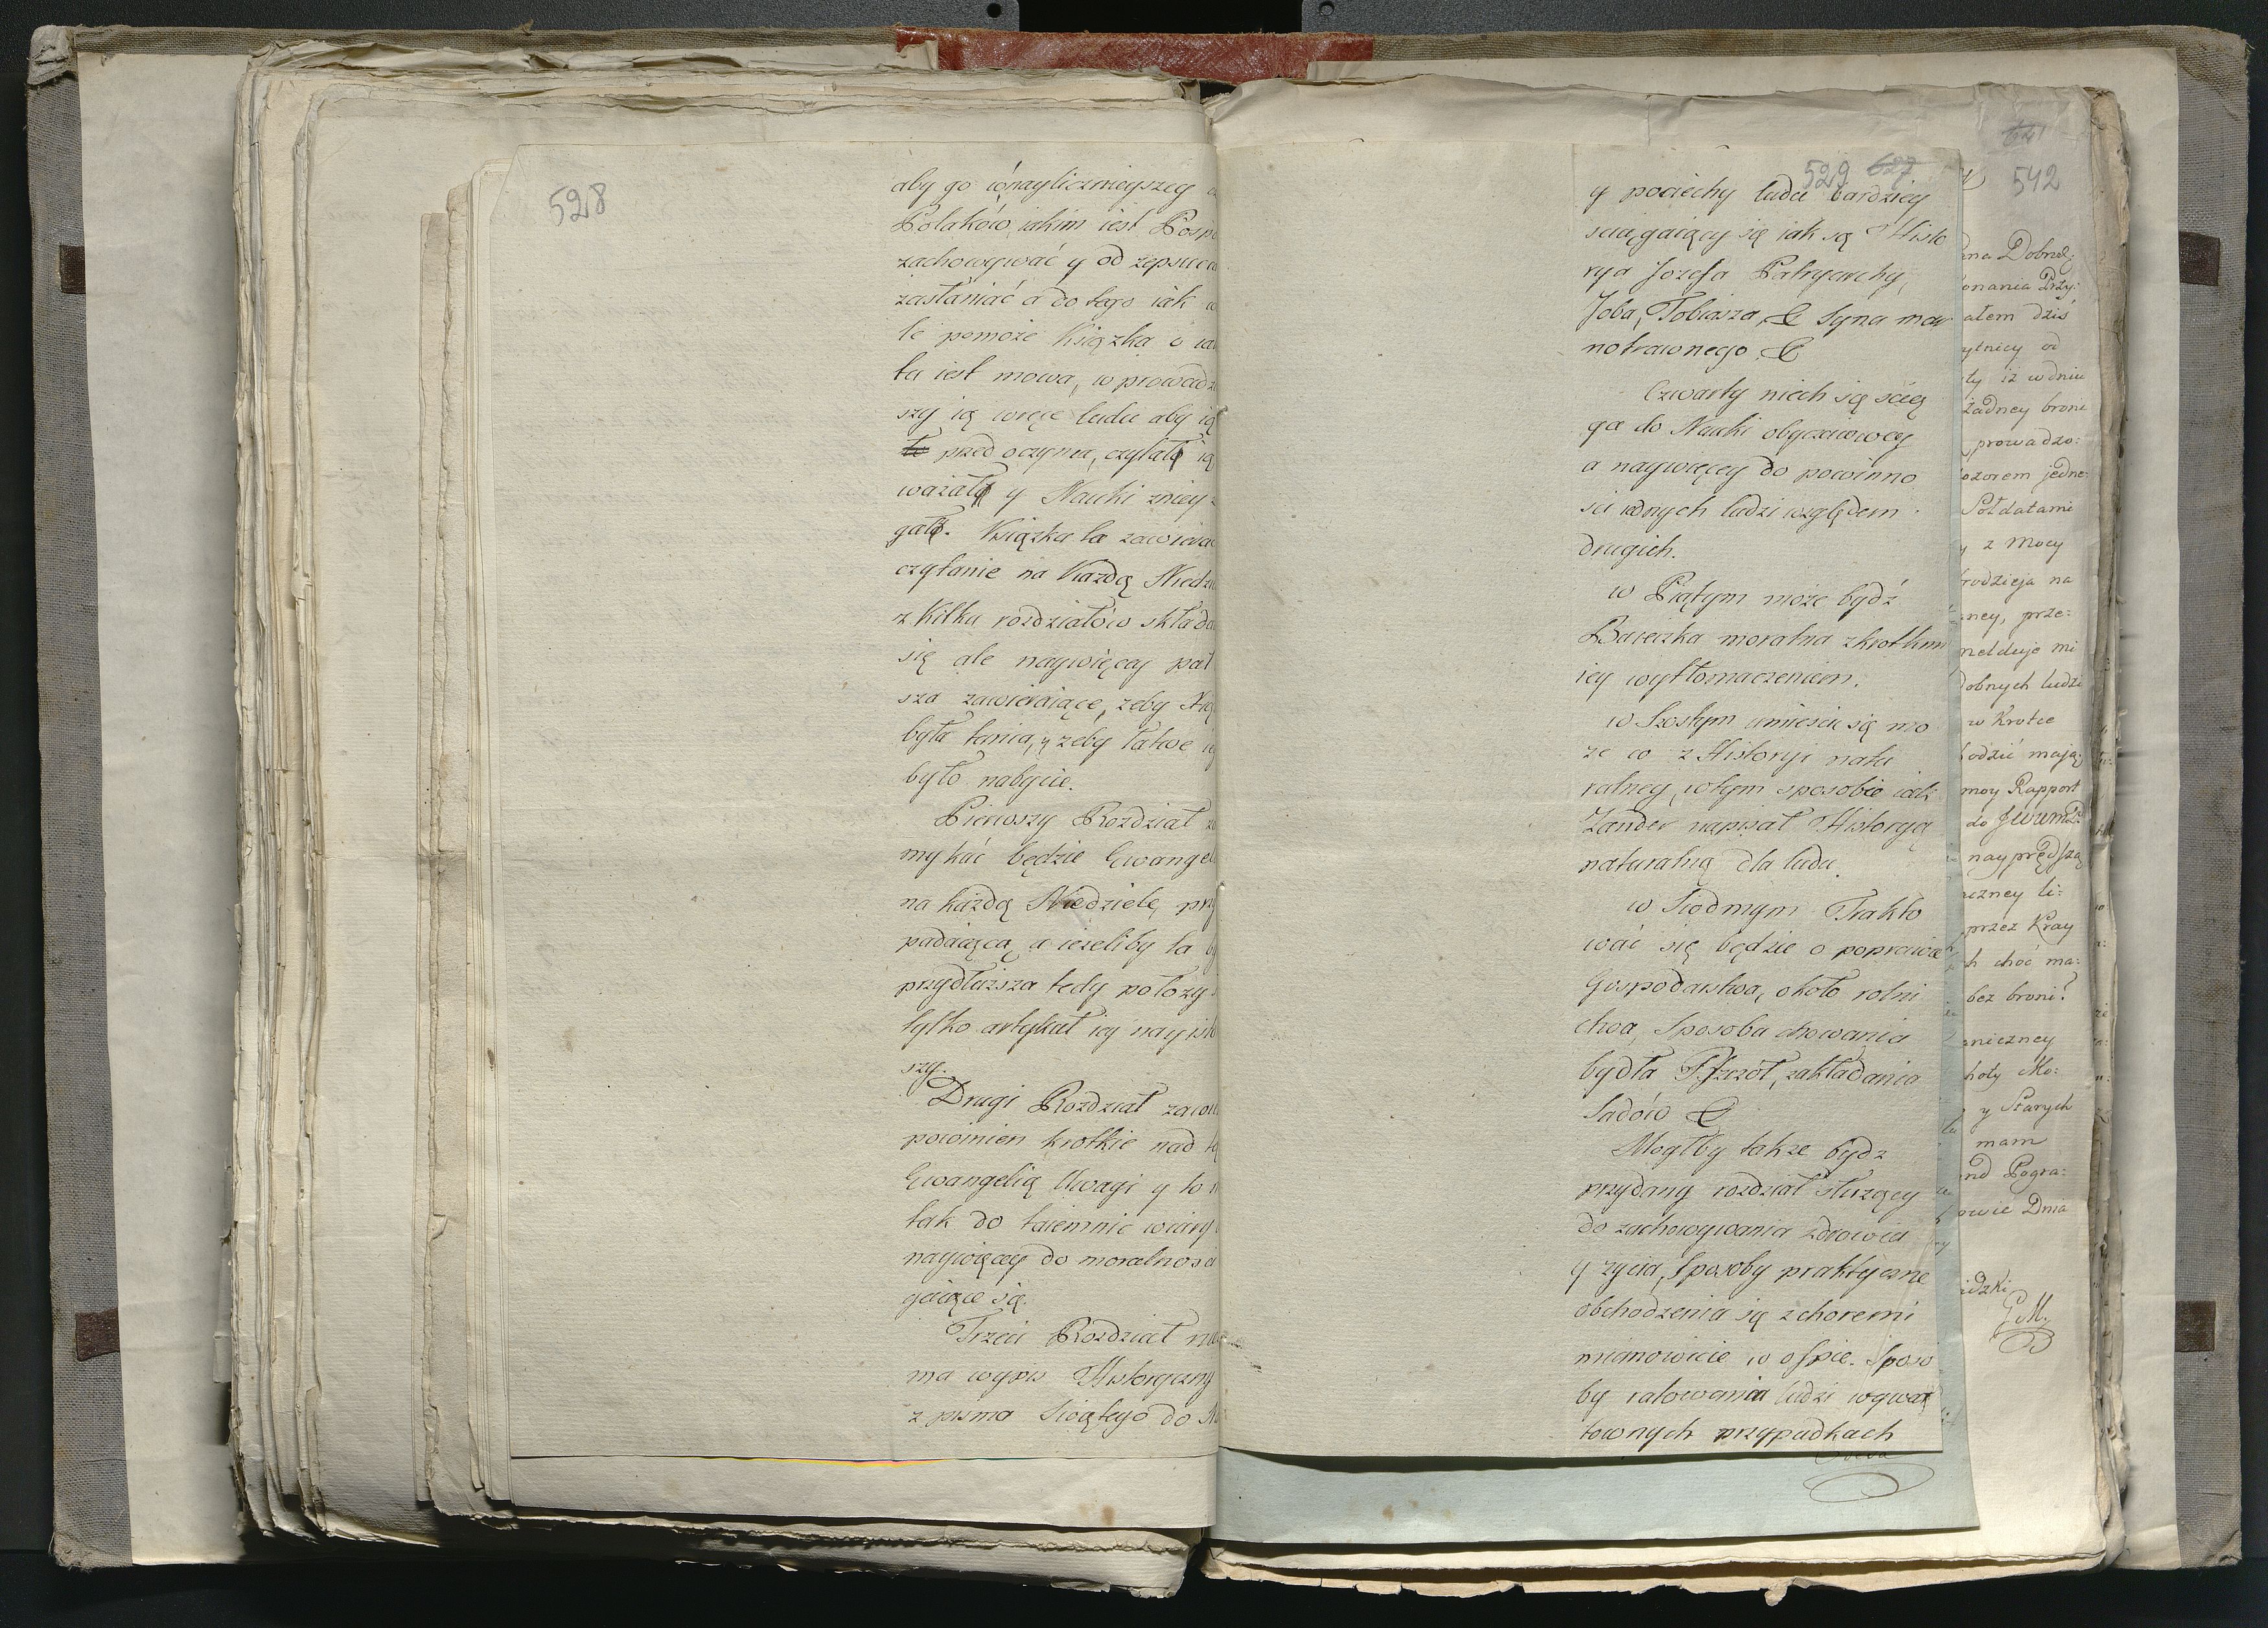 528
aby go w naylicznieyszey
Polaków, iakim iest Posp
zachowywać y od zepsucia
zasłaniać a do tego iak
le pomoże Książka o
tu iest mowa, w prowadzi
szy ią w ręce ludu aby ią
przed oczyma, czytał ią
ważał y Nauki z niey
gał. Książka ta zawiera
czytanie na Każdą Niedzi
z Kilku rozdziałów składa
się ale naywięcey pół
sza zawieraiące, żeby
była tania, y żeby łatwe
było nabycie.
Pierwszy Rozdział za
mykać będzie Ewangel
na każdą Niedzielę, prz
padaiącą, a ieżeliby ta by
przydłuższa tedy położy
tylko artykuł iey nayisto
szy.
Drugi Rozdział zawi
powinien krotkie nad tą
Ewangelią Uwagi y to
tak do taiemnic wiary
naywięcey do moralnosci
gaiące się.
Trzeci Rozdział
ma wypis Historyczny
z pisma Swiętego do
529 627
y pociechy ludu bardziey
sciągaiący się iak są Histo
rya Jozefa Patryarchy,
Joba, Tobiasza, & Syna mar
notrawnego &
Czwarty niech się ścią
ga do Nauki obyczaiowey
a naywięcey do powinno
sci iednych ludzi względem
drugich.
w Piątym może bydź
Baieczka moralna z krotkim
iey wytłomaczeniem.
w Szostym umieścić się mo
że co z Historyi natu
ralney, w tym sposobie iak
Zander napisał Historyą
naturalną dla ludu.
w Siodmym Trakto
wać się będzie o poprawie
Gospodarstwa, około rolni
ctwa, Sposobu chowania
bydła Pszczół, zakładania
Sadów &
Mogłby także bydz
przydany rozdział służący
do zachowywania zdrowia
y życia, Sposoby praktyczne
obchodzenia się z choremi
mianowicie w ospie. Sposo
by ratowania ludzi w gwał
townych przypadkach
542
na Dobrod
onania Przy:
ałem dziś
ytnicy od
ty iż w dniu
żadney broni
prowadzo:
ozorem jedne
Sołdatami
y z Mocy
rodzieja na
ney, prze:
melduje mi
dobnych ludzi
w Krotce
odzić mają
moy Rapport
do
nayprędszą
czney li:
przez Kray
h choć ma:
bez broni!
aniczney
hoty Mo:
y Starych
mam
nd Pogra:
owie Dnia
idzki
G.M.